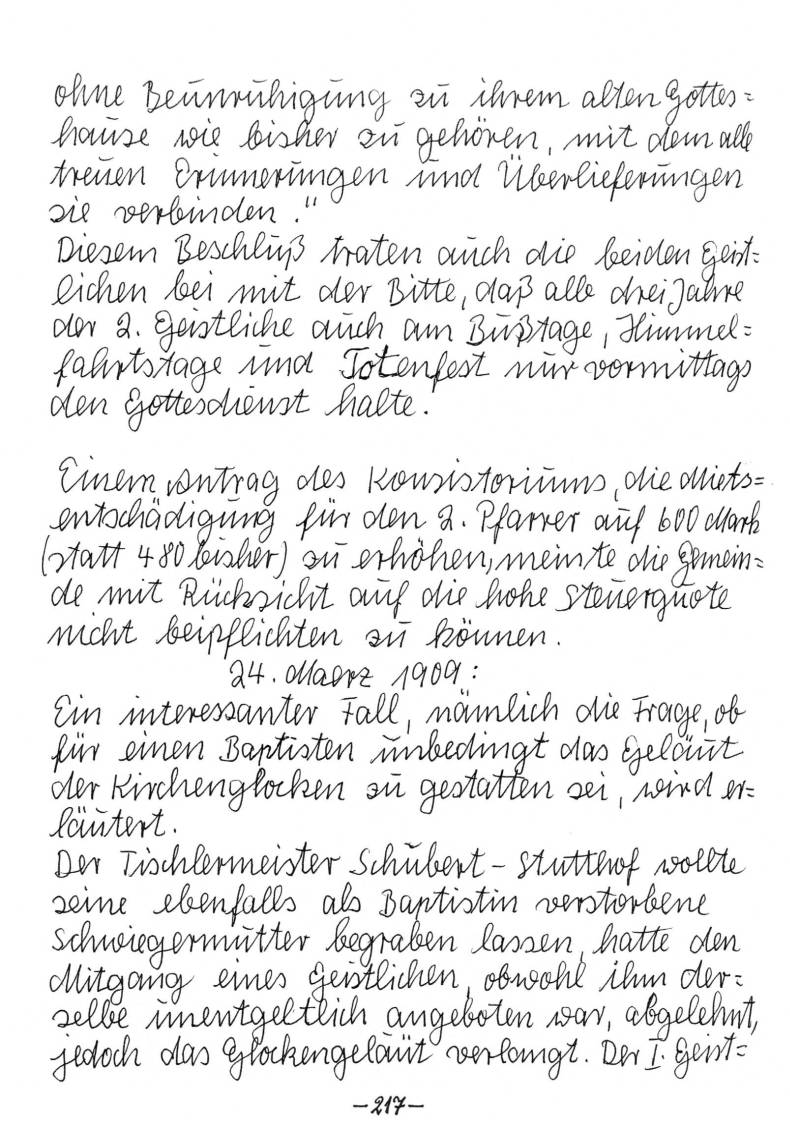 ohne Beunruhigung zu ihrem alten Gottes=
hause wie bisher zu gehören, mit dem alle
treuen Erinnerungen und Überlieferungen
sie verbinden."
Diesem Beschluß traten auch die beiden Geist=
lichen bei mit der Bitte, daß alle drei Jahre
der 2. Geistliche auch am Bußtage, Himmel=
fahrtstage und Totenfest nur vormittags
den Gottesdienst halte.
Einem Antrag des Konsistoriums, die Miets=
entschädigung für den 2. Pfarrer auf 600 Mark
(statt 480 bisher) zu erhöhen, meinte die Gemein=
de mit Rücksicht auf die hohe Steuerquote
nicht beipflichten zu können.
24. Maerz 1909:
Ein interessanter Fall, nämlich die Frage, ob
für einen Baptisten unbedingt das Geläut
der Kirchenglocken zu gestatten sei, wird er=
läutert.
Der Tischlermeister Schubert - Stutthof wollte
seine ebenfalls als Baptistin verstorbene
Schwiegermutter begraben lassen, hatte den
Mitgang eines Geistlichen, obwohl ihm der=
selbe unentgeltlich angeboten war, abgelehnt,
jedoch das Glockengeläut verlangt. Der I. Geist=
-217-